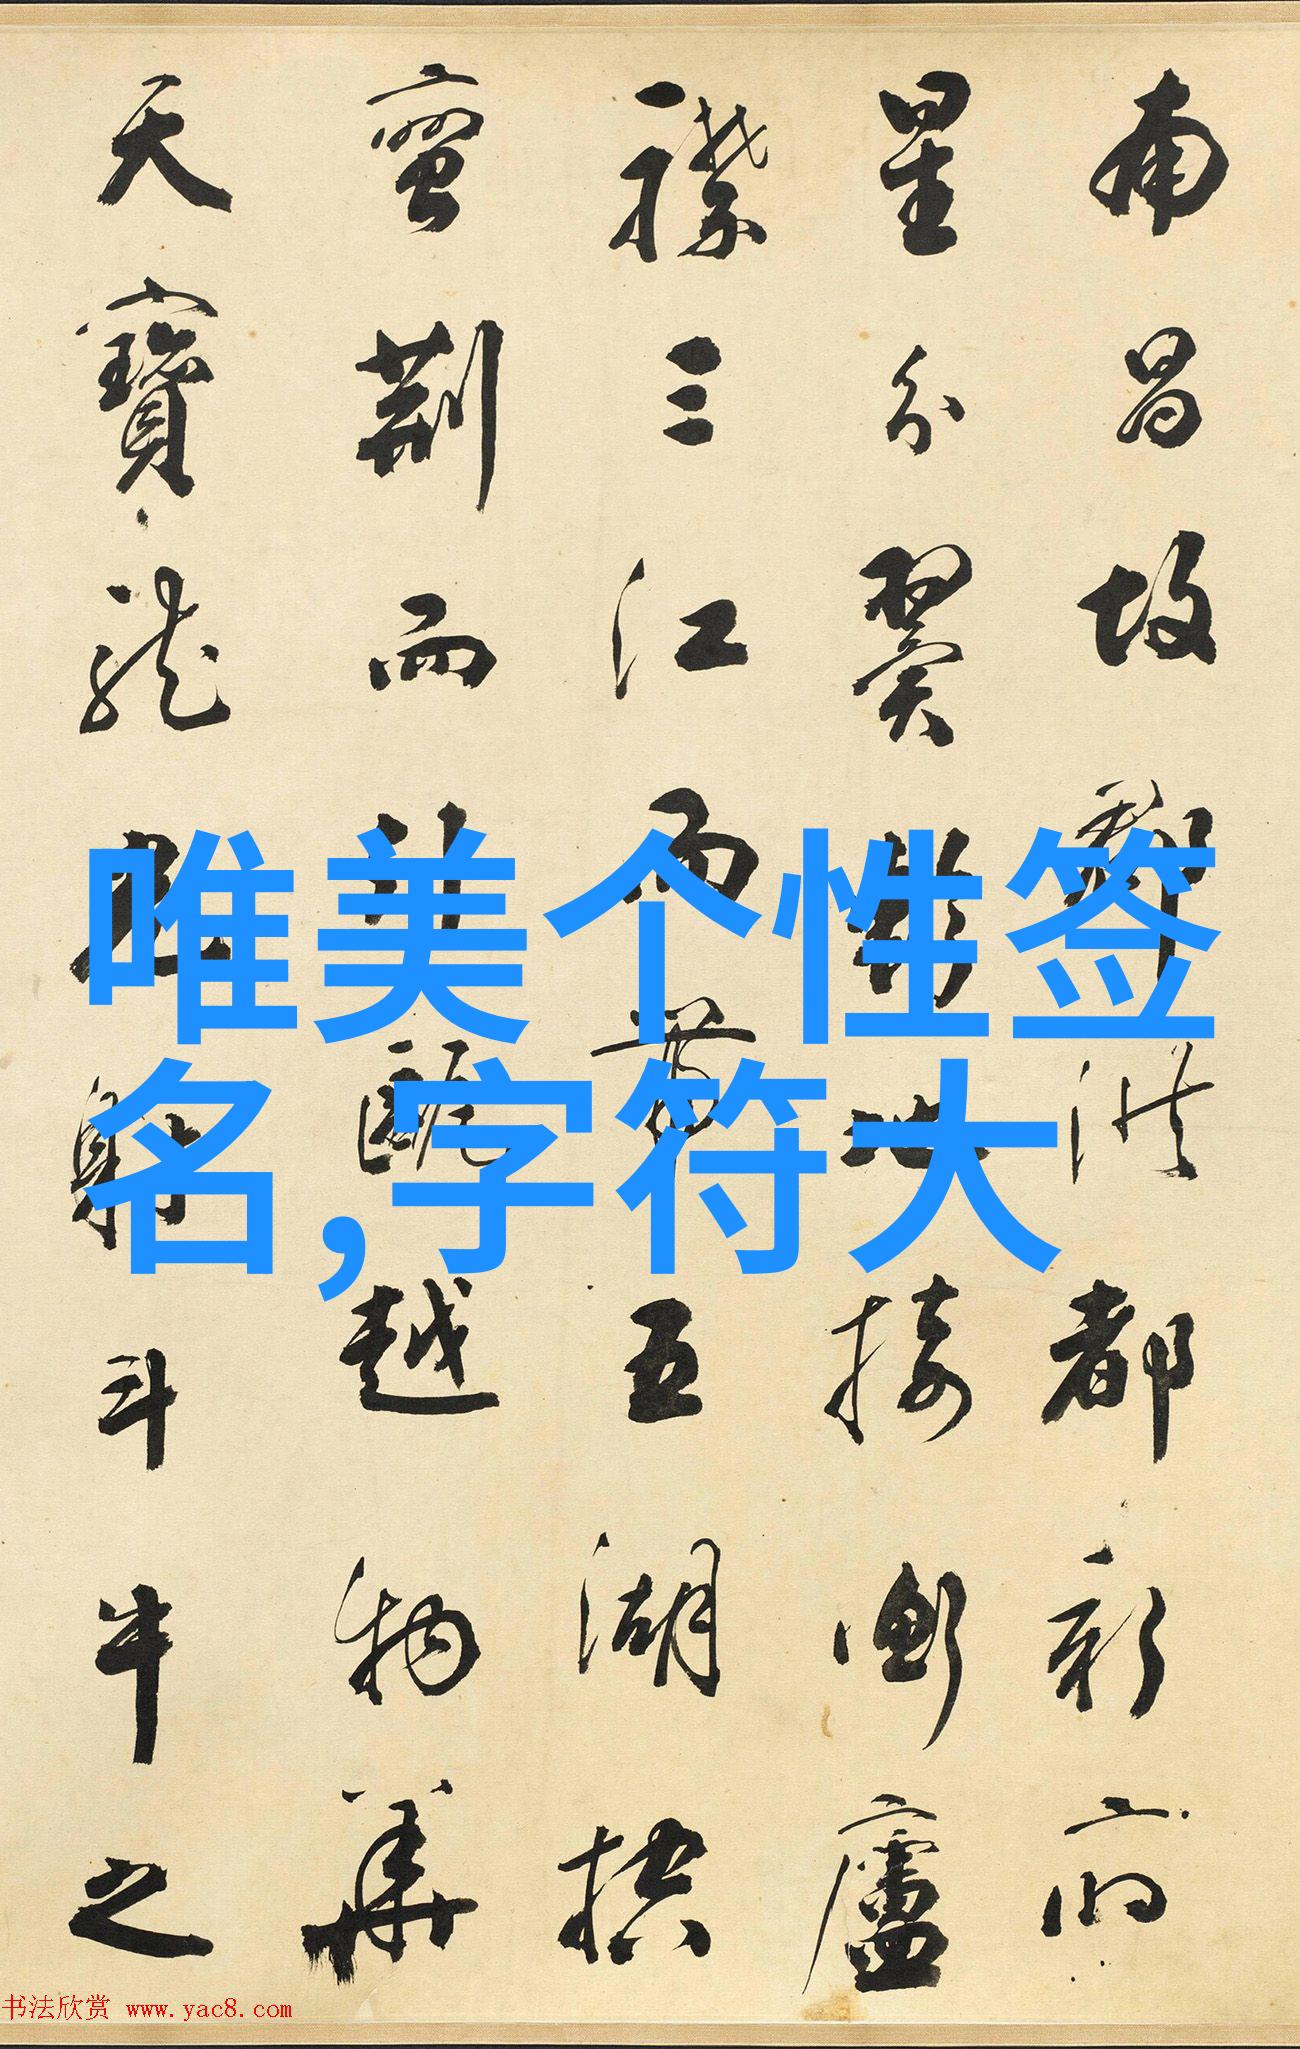 南昌故郡洪都新府
星分翼軫地接衡廬
襟三江而帶五湖控
蠻荊而引甌越物華
天寶龍光射斗牛之
唯美个性签
名,字符大
书法欣赏 www.yac8.com